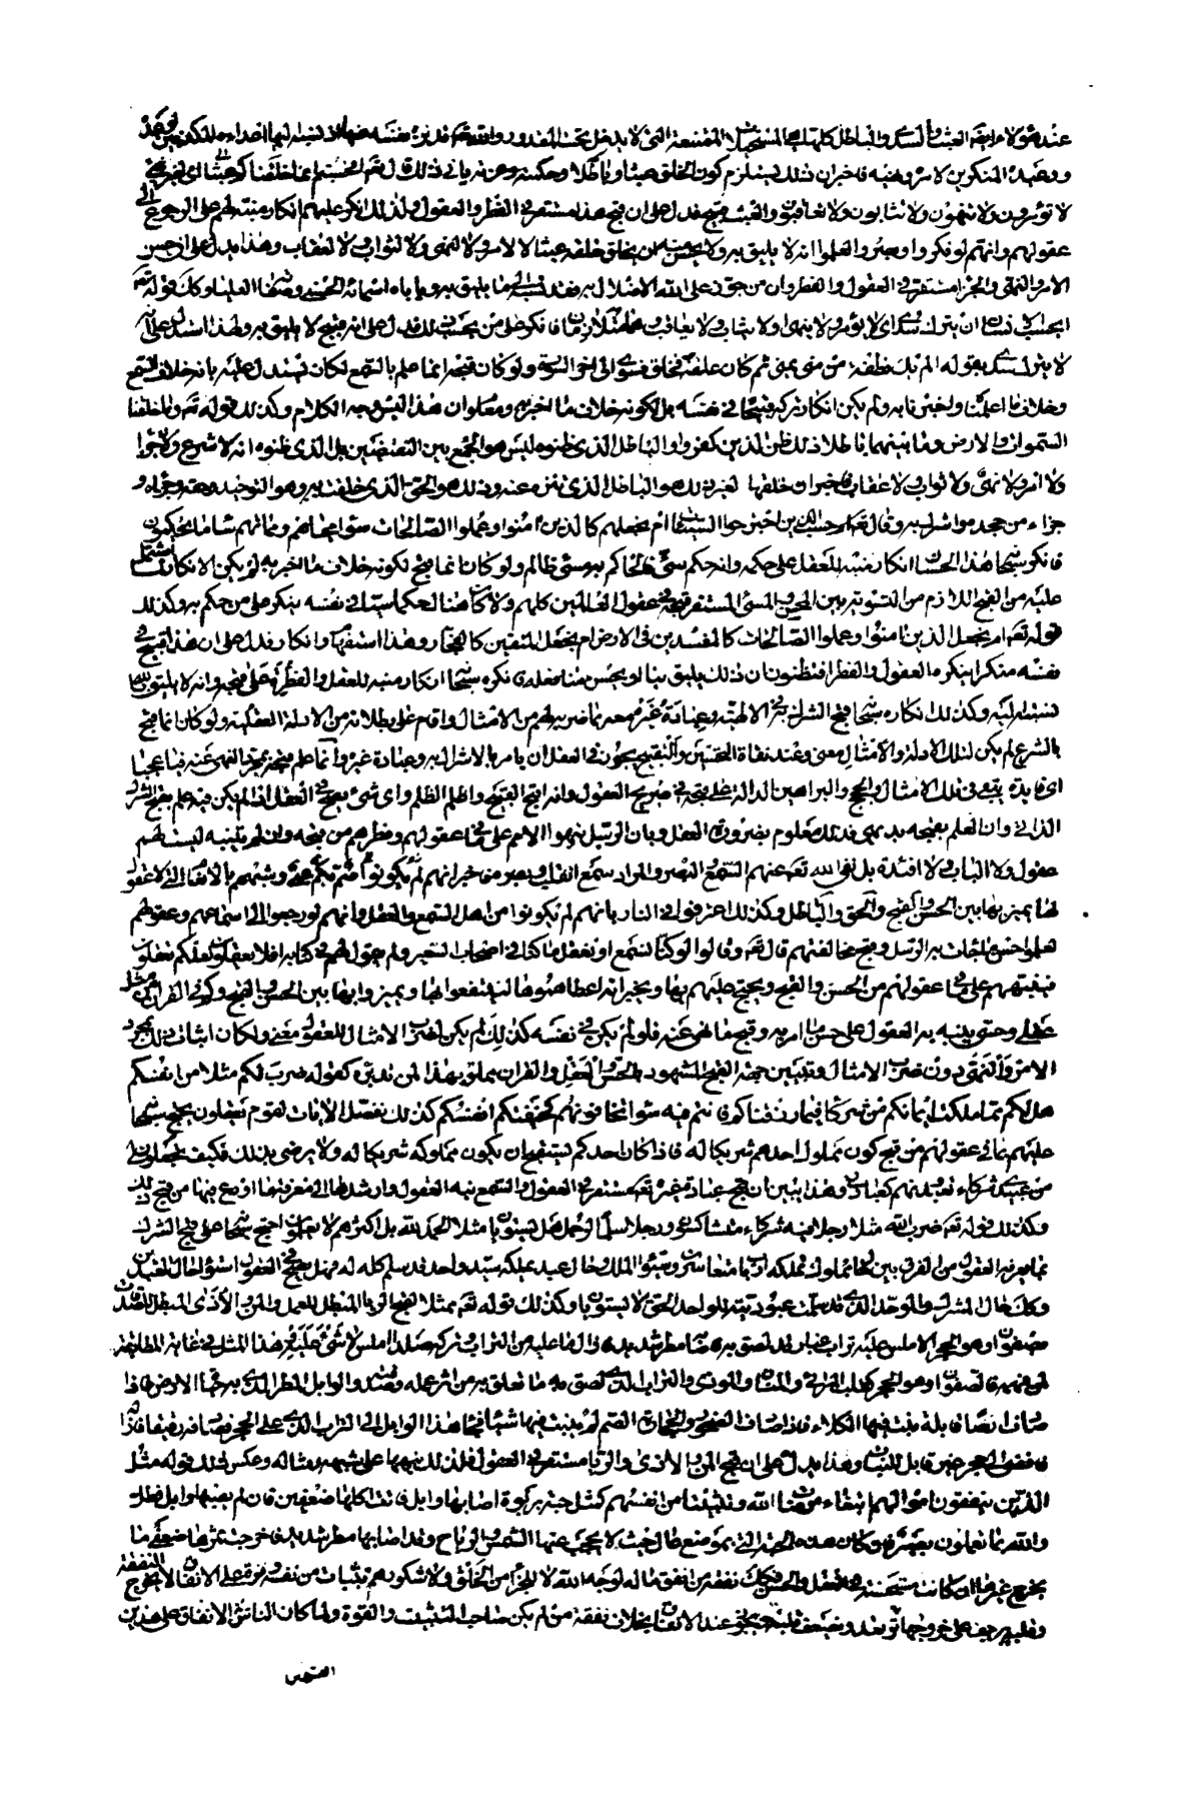 عند هؤلاء مرادفة العبث والسدى والباطل كلها هي المستحيلات الممتنعة التي لا يدخل تحت المقدور والله تعالى قد نزه نفسه عنها اذ نسبه اليها اعداؤه المكذبون بوعده
ووعيده المنكرين لامره ونهيه فاخبر ان ذلك يستلزم كون الخلق عبثا وباطلا وحكمته وعزته يابى ذلك قال تعالى افحسبتم انما خلقناكم عبثا اى لغير شئ
لا تؤمرون ولا تنهون ولا تثابون ولا تعاقبون والعبث قبيح فدل على ان قبح هذا مستقر فى الفطر والعقول ولذلك انكر عليهم انكار منبه لهم على الرجوع الى
عقولهم وانهم لو فكروا وابصروا لعلموا انه لا يليق به ولا يحسن منه ان يخلق خلقه عبثا لا لامر ولا لنهى ولا لثواب ولا لعقاب وهذا يدل على ان حسن
الامر والنهى والجزاء مستقر فى العقول والفطر وان من جوز على الله الاخلال به فقد نسبه الى ما لا يليق به ويأباه اسمائه الحسنى وصفاته العليا وكذا قوله تعالى
ايحسب الانسان ان يترك سدى اى لا يؤمر ولا ينهى او لا يثاب ولا يعاقب وهما متلازمان فانكر على من يحسب ذلك فدل على انه قبيح لا يليق به ولهذا استدل على انه
لا يتركه سدى بقوله الم يك نطفة من منى يمنى ثم كان علقة فخلق فسوى الى اخر السورة ولو كان قبحه انما علم بالسمع لكان يستدل عليه بانه خلاف السمع
وخلاف ما اعلمناه واخبرنا به ولم يكن انكاره لكونه قبيحا فى نفسه بل لكونه خلاف ما اخبر به ومعلوم ان هذا ليس وجه الكلام وكذلك قوله تعالى وما خلقنا
السموات والارض وما بينهما باطلا ذلك ظن الذين كفروا والباطل الذى ظنوه ليس هو الجمع بين النقيضين بل الذى ظنوه انه لا شرع ولا جزاء
ولا امر ولا نهى ولا ثواب ولا عقاب فاخبر ان خلقها لغير ذلك هو الباطل الذى تنزه عنه وذلك هو الحق الذى خلقت به وهو التوحيد وحقه وجزاؤه و
جزاء من جحده واشرك به وقال تعالى ام حسب الذين اجترحوا السيئات ان نجعلهم كالذين امنوا وعملوا الصالحات سواء محياهم ومماتهم ساء ما يحكمون
فانكر سبحانه هذا الحسبان انكار منبه للعقل على حكمه وانه حكم سيئ فالحاكم به مسئ ظالم ولو كان انما قبح لكونه خلاف ما اخبر به لم يكن الانكار لما اشتمل
عليه من القبح اللازم من التسوية بين المحسن والمسئ المستقر قبحه فى عقول العالمين كلهم ولا كان هنا لك حكم سيئ فى نفسه ينكر على من حكم به وكذلك
قوله تعالى ام نجعل الذين امنوا وعملوا الصالحات كالمفسدين فى الارض ام نجعل المتقين كالفجار وهذا استفهام انكار فدل على ان هذا قبيح فى
نفسه منكر ينكره العقول والفطر افتظنون ان ذلك يليق بنا او يحسن منا فعله فانكره سبحانه انكار منبه للعقل والفطرة على قبحه وانه لا يليق بالله
نسبته اليه وكذلك انكاره سبحانه قبح الشرك به فى الالهية وعبادة غيره معه بما ضربه لهم من الامثال واقام على بطلانه من الادلة العقلية ولو كان انما قبح
بالشرع لم يكن لتلك الادلة والامثال معنى وعند نفاة التحسين والتقبيح يجوز فى العقل ان يامر بالاشراك به وعبادة غيره وانما علم قبحه بمجرد النهى عنه فيا عجبا
اى فايدة تبقى فى تلك الامثال والحجج والبراهين الدالة على قبحه فى صريح العقول وانه اقبح القبيح واظلم الظلم واى شئ يصح فى العقل اذا لم يكن فيه علم بقبح الشرك
الذاتى وان العلم بقبحه بديهى فذلك معلوم بضرورة العقل وبان الرسل نبهوا الامم على ما فى عقولهم وفطرهم من قبحه وان لم يتنبه ليست لهم
عقول ولا الباب ولا افئدة بل نفى الله تعالى عنهم السمع والبصر والمراد سمع القلب وبصره فاخبر انهم صم بكم عمى وشبههم بالانعام التى لا عقول
لها يميز بها بين الحسن والقبيح والحق والباطل وكذلك اعترفوا فى النار بانهم لم يكونوا من اهل السمع والعقل وانهم لو رجعوا الى اسماعهم وعقولهم
لعلموا حسن ما جائت به الرسل وقبح مخالفتهم قال تعالى وقالوا لو كنا نسمع او نعقل ما كنا فى اصحاب السعير وكم يقول لهم فى كتابه افلا تعقلون لعلكم تعقلون
فينبههم على ما فى عقولهم من الحسن والقبح ويحتج عليهم بها ويخبر انه اعطاهموها لينتفعوا بها ويميزوا بها بين الحسن والقبح وكم فى القرآن من مثل
عقلى وحسى ينبه به العقول على حسن ما امر به وقبح ما نهى عنه فلو لم يكن فى نفسه كذلك لم يكن لضرب الامثال للعقول معنى ولكان اثبات ذلك بمجرد
الامر والنهى دون ضرب الامثال وتبيين جهة القبح المشهودة بالحس والعقل والقران مملو بهذا لمن تدبره كقوله ضرب لكم مثلا من انفسكم
هل لكم مما ملكت ايمانكم من شركاء فيما رزقناكم فانتم فيه سواء تخافونهم كخيفتكم انفسكم كذلك نفصل الايات لقوم يعقلون يحتج سبحانه
عليهم بما فى عقولهم من قبح كون مملوك احدهم شريكا له فاذا كان احدكم يستقبح ان يكون مملوكه شريكا له ولا يرضى بذلك فكيف تجعلون لى
من عبيدى شركاء تعبدونهم كعبادتى وهذا يبين ان قبح عبادة غيره تعالى مستقر فى العقول والسمع نبه العقول وارشدها الى معرفة ما اودع فيها من قبح ذلك
وكذلك قوله تعالى ضرب الله مثلا رجلا فيه شركاء متشاكسون ورجلا سلما لرجل هل يستويان مثلا الحمد لله بل اكثرهم لا يعلمون احتج سبحانه على قبح الشرك
بما يعرفه العقول من الفرق بين حال مملوك يملكه ارباب متعاسرون سيئو الملكة وحال عبد يملكه سيد واحد قد سلم كله له فهل يصح فى العقول استواء حال العبدين
وكذلك حال المشرك والموحد الذى قد سلمت عبوديته للواحد الحق لا يستويان وكذلك قوله تعالى ممثلا لقبح الريا المبطل للعمل والمن والاذى المبطل للصدقات
صفوان وهو الحجر الاملس عليه تراب غبار قد لصق به فاصابه مطر شديد فازال ما عليه من التراب فتركه صلدا املس لا شئ عليه وهذا المثل فى غاية المطابقة
لمن فهمه فالصفوان وهو الحجر كقلب المرائى والمان والموذى والتراب الذى لصق به ما تعلق به من اثر عمله وصدقته والوابل المطر الذى به حياة الارض فاذا
صادف ارضا قابلة نبت فيها الكلاء فاذا صادف الصخور والحجارة الصم لم ينبت فيها شيئا فجاء هذا الوابل الى التراب الذى على الحجر فصادفه رقيقا فازاله
فافضى الى حجر غير قابل للنبات وهذا يدل على ان قبح المن والاذى والريا مستقر فى العقول فلذلك نبهها على شبهه ومثاله وعكس ذلك قوله مثل
الذين ينفقون اموالهم ابتغاء مرضات الله وتثبيتا من انفسهم كمثل جنة بربوة اصابها وابل فاتت اكلها ضعفين فان لم يصبها وابل فطل
والله بما تعملون بصير فان كانت هذه الجنة التى بموضع عال حيث لا يحجب عنها الشمس والرياح وقد اصابها مطر شديد فاخرجت ثمرتها ضعفى ما
يخرج غيرها ان كانت مستحسنة فى العقل والحس فكذلك نفقة من انفق ماله لوجه الله لا للجزاء من الخلق ولا لشكورهم بثبات من نفسه وقوة على الانفاق لا يخرج النفقة
وقلبه يرجف على خروجها ويرتعد ويضعف قلبه ويخور عند الانفاق بخلاف نفقة من لم يكن صاحب التثبيت والقوة ولما كان الناس فى الانفاق على هذين
القسمين